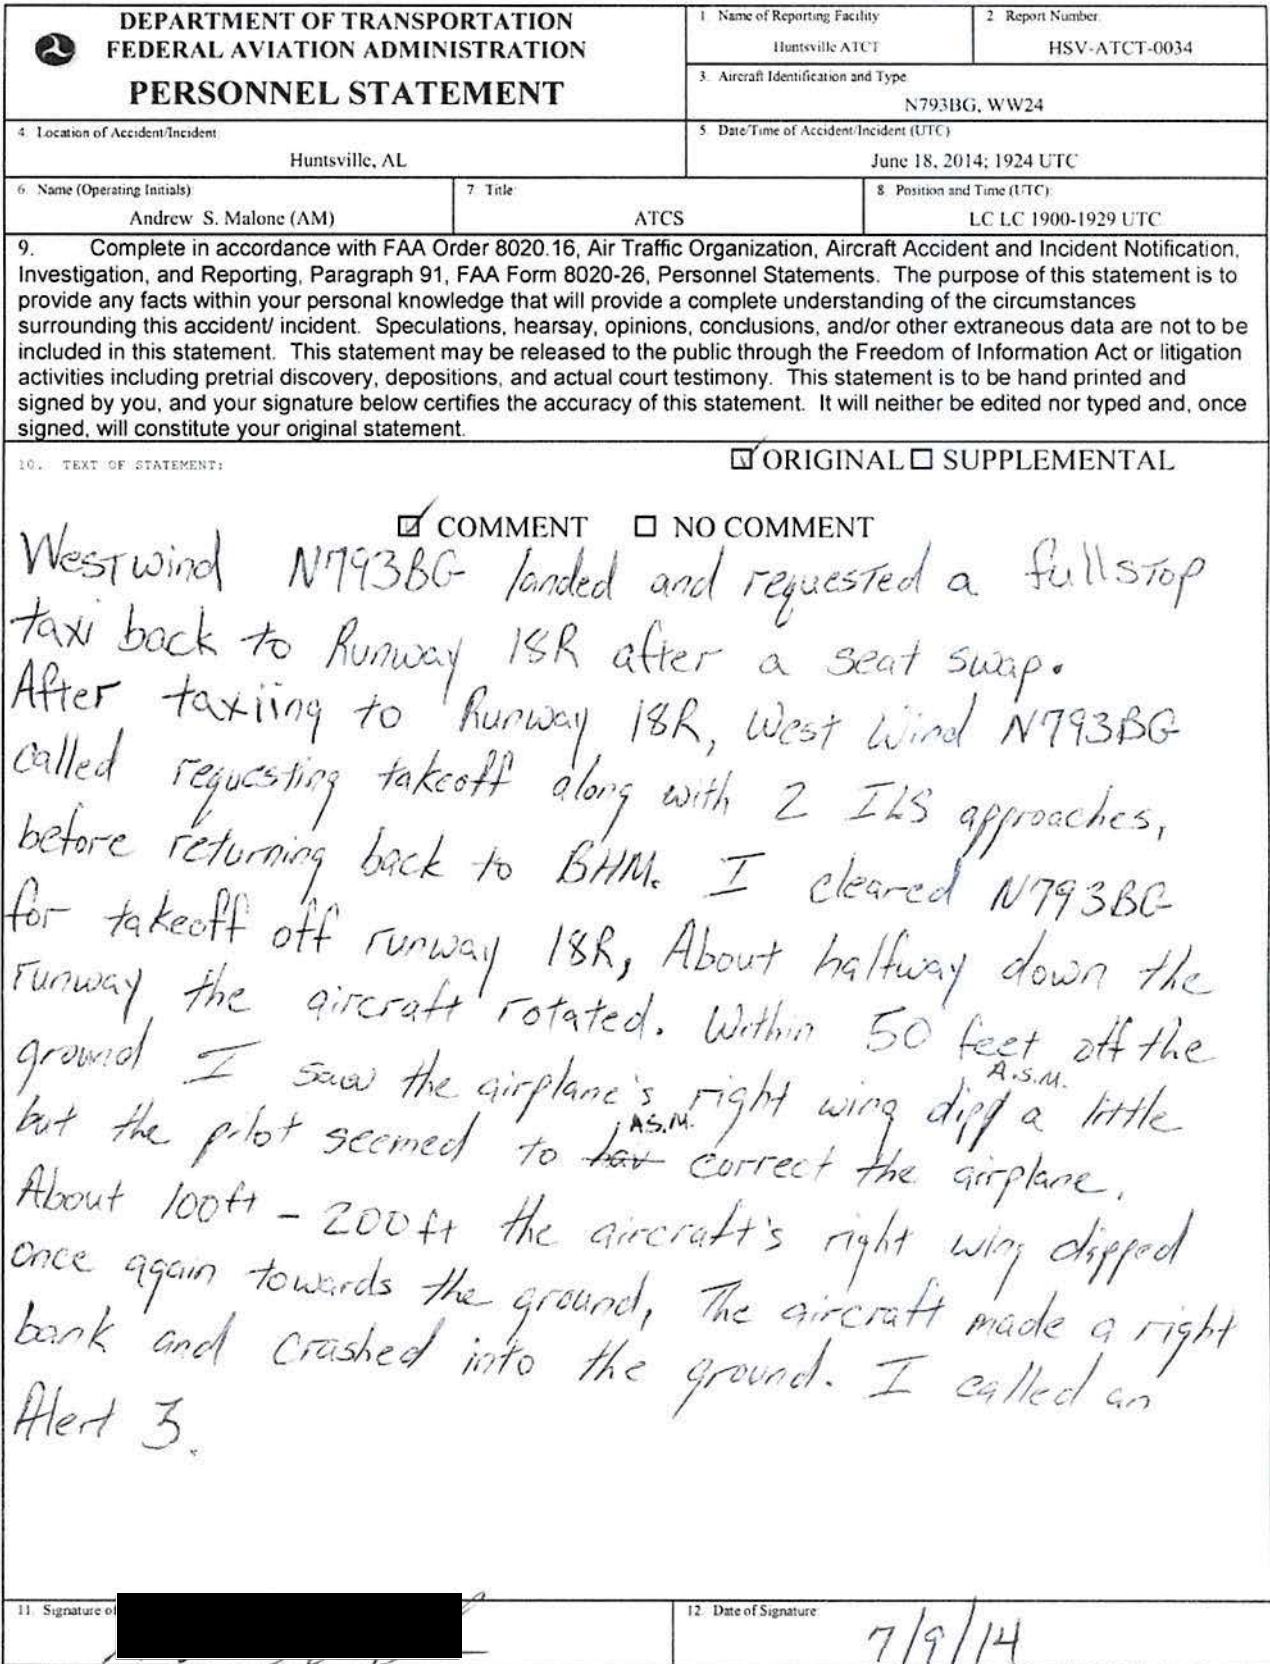 DEPARTMENT OF TRANSPORTATION
FEDERAL AVIATION ADMINISTRATION
PERSONNEL STATEMENT
1 Name of Reporting Facility
Huntsville ATCT
2 Report Number:
HSV-ATCT-0034
3. Aircraft Identification and Type
N793BG, WW24
4. Location of Accident/Incident:
Huntsville, AL
5. Date/Time of Accident/Incident (UTC)
June 18, 2014; 1924 UTC
6. Name (Operating Initials):
Andrew S. Malone (AM)
7 Title:
ATCS
8 Position and Time (UTC):
LC LC 1900-1929 UTC
9. Complete in accordance with FAA Order 8020.16, Air Traffic Organization, Aircraft Accident and Incident Notification,
Investigation, and Reporting, Paragraph 91, FAA Form 8020-26, Personnel Statements. The purpose of this statement is to
provide any facts within your personal knowledge that will provide a complete understanding of the circumstances
surrounding this accident/ incident. Speculations, hearsay, opinions, conclusions, and/or other extraneous data are not to be
included in this statement. This statement may be released to the public through the Freedom of Information Act or litigation
activities including pretrial discovery, depositions, and actual court testimony. This statement is to be hand printed and
signed by you, and your signature below certifies the accuracy of this statement. It will neither be edited nor typed and, once
signed, will constitute your original statement.
10. TEXT OF STATEMENT:
ORIGINAL SUPPLEMENTAL
COMMENT NO COMMENT
Westwind N793BG landed and requested a full stop
taxi back to Runway 18R after a seat swap.
After taxiing to Runway 18R, West Wind N793BG
called requesting takeoff along with 2 ILS approaches,
before returning back to BHM. I cleared N793BG
for takeoff off runway 18R, About halfway down the
runway the aircraft rotated. Within 50 feet off the
ground I saw the airplane's right wing dipp a little
A.S.M.
but the pilot seemed to hav correct the airplane.
A.S.M.
About 100ft - 200ft the aircraft's right wing dipped
once again towards the ground, The aircraft made a right
bank and crashed into the ground. I called an
Alert 3.
11. Signature of
12 Date of Signature:
7/9/14